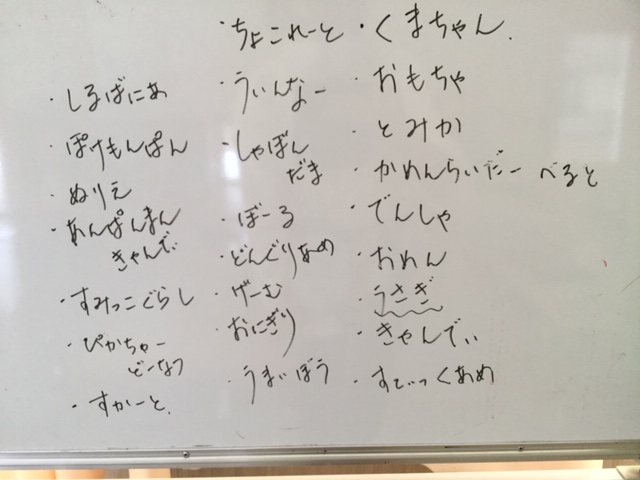 ・ちょこれーと ・くまちゃん.
・しるばにあ
・ぽけもんぱん
・ぬりえ
・あんぱんまん
きゃんでぃ
・すみっこぐらし
・ぴかちゅー
どーなつ
・すかーと.
・ういんなー
・しゃぼん
だま
・ぼーる
・どんぐりあめ
・げーむ
・おにぎり
・うまいぼう
・おもちゃ
・とみか
・かめんらいだー べると
・でんしゃ
・おめん
・うさぎ
・きゃんでぃ
・すてぃっくあめ